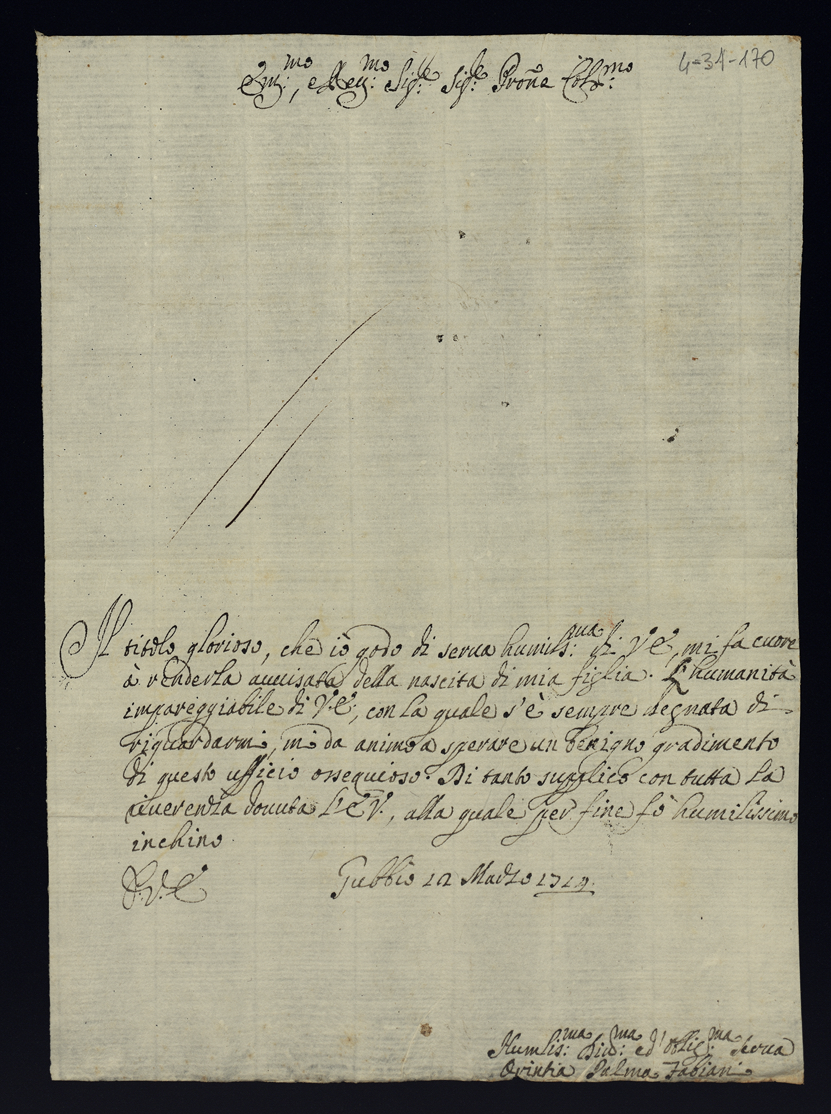 4-31-170
Em:mo, e Rev:mo Sig:re Sig:re Proñe Col:mo
Il titolo glorioso, che io godo di serua humilis:ma di V.E., mi fa cuore
à renderla auuisata della nascita di mia figlia. L'humanità
impareggiabile di V.E., con la quale s'è sempre degnata di
riguardarmi, mi da animo a sperare un benigno gradimento
di questo ufficio ossequioso. Di tanto supplico con tutta la
riuerenza douuta l'E.V., alla quale per fine fò humilissimo
inchino.
D.V.E.
Gubbio 12 Marzo
Humlis:ma Diu:ma ed' Oblig:ma Serua
Orintia Palma Fabiani